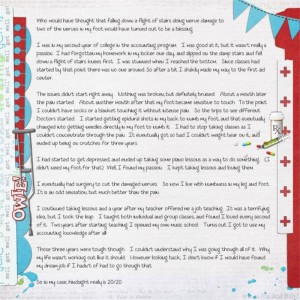 Who would have thought that falling down a flight of stairs doing nerve damage to
two of the nerves in my foot would have turned out to be a blessing.
I was in my second year of college in the accounting program. I was good at it, but it wasn't really a
passion. I had forgotten my homework in my locker one day, and slipped on the damp stairs and fell
down a flight of stairs knees first. I was stunned when I reached the bottom. Since classes had
started by that point there was no one around. So after a bit I shakily made my way to the first aid
center.
The issues didn't start right away. Nothing was broken, but definitely bruised. About a month later
the pain started. About another month after that my foot became sensitive to touch. To the point
I couldn't have socks or a blanket touching it without intense pain. So the trips to see different
Doctors started. I started getting epidural shots in my back to numb my foot, and that eventually
changed into getting needles directly in my foot to numb it. I had to stop taking classes as I
couldn't concentrate through the pain. It eventually got so bad I couldn't weight bear on it, and
ended up being on crutches for three years.
I had started to get depressed, and ended up taking some piano lessons as a way to do something. (I
didn't need my foot for that!) Well I found my passion. I kept taking lessons and loving them.
I eventually had surgery to cut the damaged nerves. So now I live with numbness in my leg and foot.
It is an odd sensation, but much better than the pain.
I continued taking lessons and a year after my teacher offered me a job teaching. It was a terrifying
job, but I took the leap. I taught both individual and group classes, and found I loved every second
of it. Two years after starting teaching I opened my own music school. Turns out I got to use my
accounting knowledge after all!
Those three years were tough though. I couldn't understand why I was going though all of it. Why
life wasn't working out like it should. However looking back, I don't know if I would have found
my dream job if I hadn't of had to go through that.
So in my case, hindsight really is 20/20
OWIE!
Rx